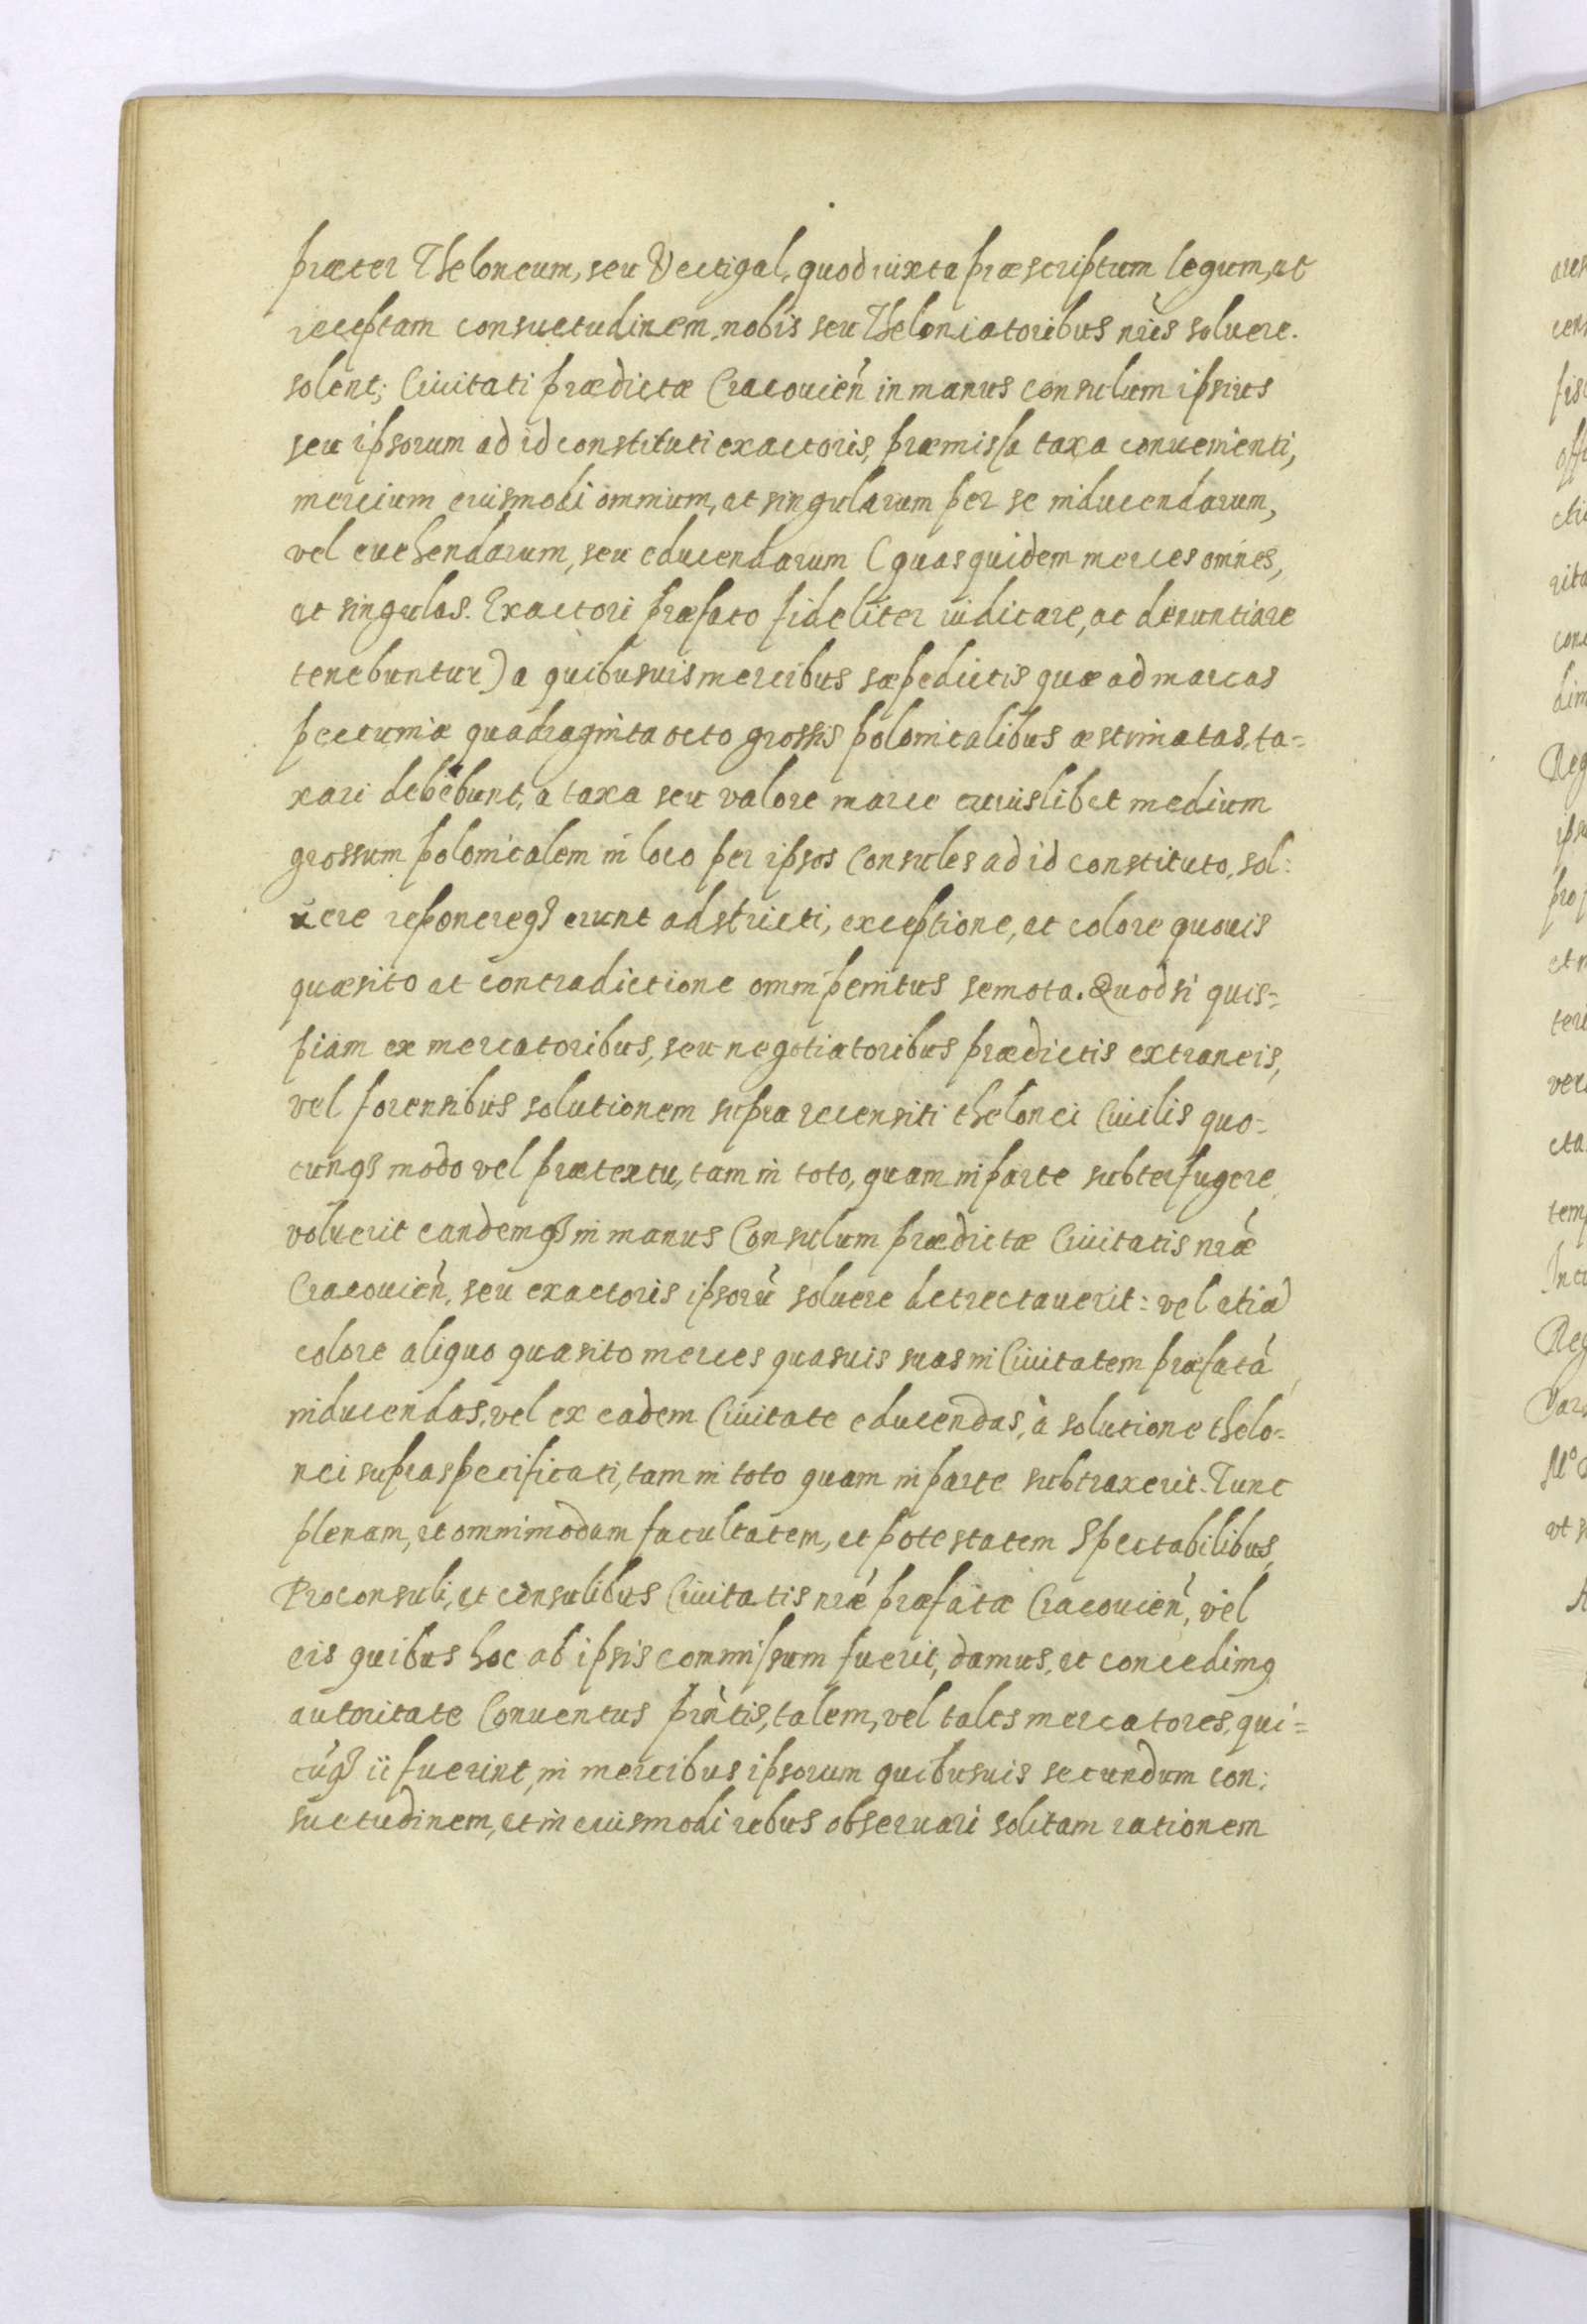 præter Theloneum, seu Vectigal, quod iuxta præscriptum legum, et
receptam consuetudinem, nobis seu Theloniatoribus nr̃is soluere.
solent; Ciuitati prædictæ Cracouień in manus consulum ipsius
seu ipsorum ad id constituti exactoris, præmissa taxa conuenienti,
mercium eiusmodi omnium, et singularum per se inducendarum,
vel euehendarum, seu educendarum (quas quidem merces omnes,
et singulas. Exactori præfato fideliter iudicare, ac denuntiare
tenebuntur) a quibusuis mercibus sæpedictis quæ ad marcas
pecuniæ quadraginta octo grossis polonicalibus æstimatas, ta=
xari debebunt, a taxa seu valore marce cuiuslibet medium
grossum polonicalem in loco per ipsos Consules ad id constituto, sol:
uere reponereq3 erunt adstricti, exceptione, et colore quouis
quæsito et contradictione omni penitus semota. Quod si quis=
piam ex mercatoribus, seu negotiatoribus prædictis extraneis,
vel forensibus solutionem supra recensiti thelonei Ciuilis quo=
cunq3 modo vel prætextu, tam in toto, quam in parte subterfugere
voluerit eandemq3 in manus Consulum prædictæ Ciuitatis nr̃æ
Cracouień, seu exactoris ipsorũ soluere detrectauerit: vel etiã
colore aliquo quæsito merces quasuis suas in Ciuitatem præfatã
inducendas, vel ex eadem Ciuitate educendas, à solutione thelo=
nei supraspecificati, tam in toto quam in parte subtraxerit. Tunc
plenam, et omnimodam facultatem, et potestatem Spectabilibus,
Proconsuli, et consulibus Ciuitatis nr̃æ præfatæ Cracouień, vel
eis quibus hoc ab ipsis commissum fuerit, damus, et concedimq
autoritate Conuentus prñtis, talem, vel tales mercatores, qui=
cũq3 ii fuerint, in mercibus ipsorum quibusuis secundum con:
suetudinem, et in eiusmodi rebus obseruari solitam rationem